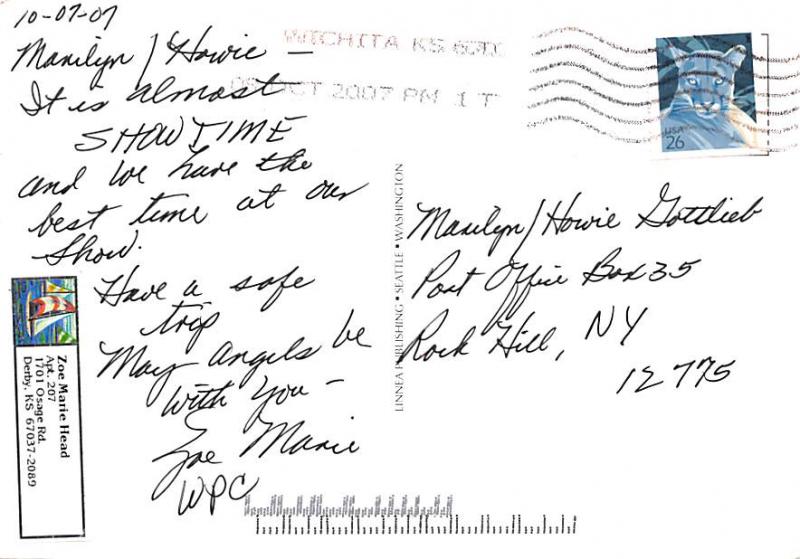 10-07-07
Marilyn/Howie —
It is almost
SHOWTIME
and we have the
best time at our
show.
Have a safe
trip
May angels be
with you —
Zoe Marie
WPC
Zoe Marie Head
Apt. 207
1701 Osage Rd.
Derby, KS 67037-2089
WICHITA KS
OCT 2007 PM 1 T
USA
26
LINNEA PUBLISHING • SEATTLE • WASHINGTON
Marilyn/Howie Gottlieb
Post Office Box 35
Rock Hill, NY
12775